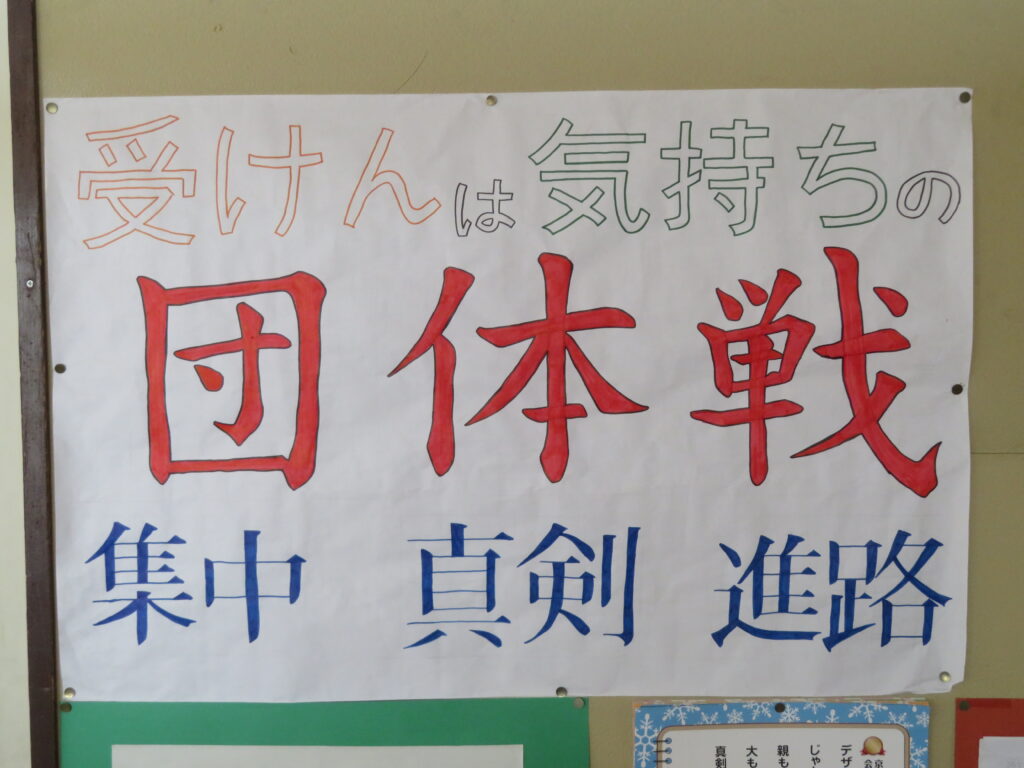 受けんは気持ちの
団体戦
集中 真剣 進路
デザ
じゃ
親も
大も
真剣